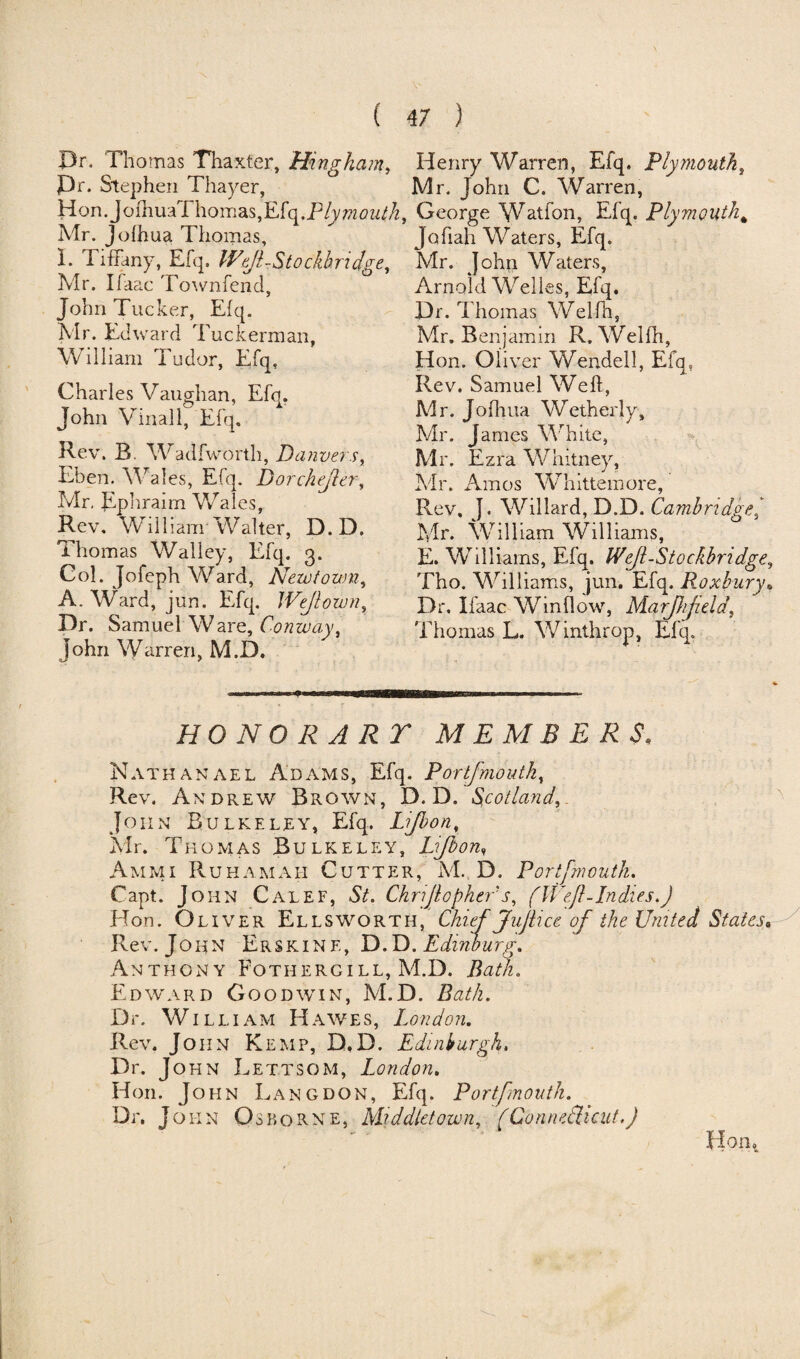 ( 47 )
Dr. Thomas Thaxter, Hingham,
Dr. Stephen Thayer,
Hon. Joſhua Thomas, Eſq. Plymouth,
Mr. Joſhua Thomas,
I. Tiffany, Eſq. Weſt-Stockbridge,
Mr. Iſaac Townſend,
John Tucker, Eſq.
Mr. Edward Tuckerman,
William Tudor, Eſq,
Charles Vaughan, Eſq.
John Vinall, Eſq.
Rev. B. Wadſworth, Danvers,
Eben. Wales, Eſq. Dorcheſter,
Mr. Ephraim Wales,
Rev. William Walter, D. D.
Thomas Walley, Eſq. 3.
Col. Joſeph Ward, Newtown,
A. Ward, jun. Eſq. Weſtown,
Dr. Samuel Ware, Conway,
John Warren, M.D.
Henry Warren, Eſq. Plymouth,
Mr. John C. Warren,
George Watſon, Eſq. Plymouth,
Joſiah Waters, Eſq.
Mr. John Waters,
Arnold Welles, Eſq.
Dr. Thomas Welſh,
Mr. Benjamin R. Welſh,
Hon. Oliver Wendell, Eſq,
Rev. Samuel Weſt,
Mr. Joſhua Wetherly,
Mr. James White,
Mr. Ezra Whitney,
Mr. Amos Whittemore,
Rev. J. Willard, D.D. Cambridge,
Mr. William Williams,
E. Williams, Eſq. Weſt-Stockbridge,
Tho. Williams, jun. Eſq. Roxbury.
Dr. Iſaac Winſlow, Marſhfield,
Thomas L. Winthrop, Eſq.
HONORARY MEMBERS.
NATHANAEL ADAMS, Eſq. Portſmouth,
Rev. ANDREW BROWN, D. D. Scotland,
JOHN BULKELEY, Eſq. Liſbon,
Mr. THOMAS BULKELEY, Liſbon,
AMMI RUHAMAH CUTTER, M. D. Portſmouth.
Capt. JOHN CALEF, St. Chriſtopher's, (Weſt-Indies.)
Hon. OLIVER ELLSWORTH, Chief Juſtice of the United States.
Rev. JOHN ERSKINE, D.D. Edinburg.
ANTHONY FOTHERGILL, M.D. Bath.
EDWARD GOODWIN, M.D. Bath.
Dr. WILLIAM HAWES, London.
Rev. JOHN KEMP, D.D. Edinburgh.
Dr. JOHN LETTSOM, London.
Hon. JOHN LANGDON, Eſq. Portſmouth.
Dr. JOHN OSBORNE, Middletown, (Connecticut.)
Hon.